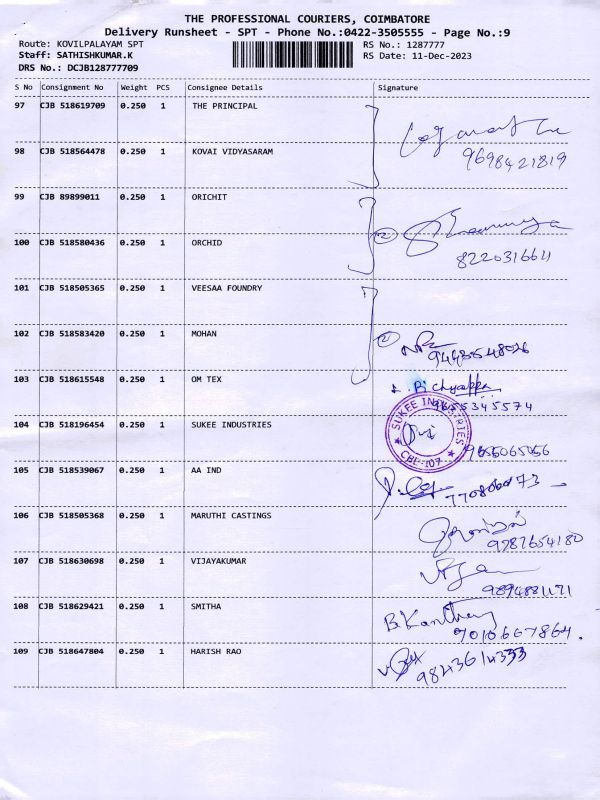 THE PROFESSIONAL COURIERS, COIMBATORE
Delivery Runsheet - SPT - Phone No.:0422-3505555 - Page No.:9
Route: KOVILPALAYAM SPT RS No.: 1287777
Staff: SATHISHKUMAR.K RS Date: 11-Dec-2023
DRS No.: DCJB128777709
S No Consignment No Weight PCS Consignee Details Signature
97 CJB 518619709 0.250 1 THE PRINCIPAL
98 CJB 518564478 0.250 1 KOVAI VIDYASARAM
9698421819
99 CJB 89899011 0.250 1 ORICHIT
100 CJB 518580436 0.250 1 ORCHID
2
8220316611
101 CJB 518505365 0.250 1 VEESAA FOUNDRY
102 CJB 518583420 0.250 1 MOHAN
2
103 CJB 518615548 0.250 1 OM TEX
9655345574
104 CJB 518196454 0.250 1 SUKEE INDUSTRIES
SUKEE INDUSTRIES
CBE-107
105 CJB 518539067 0.250 1 AA IND
106 CJB 518505368 0.250 1 MARUTHI CASTINGS
9787654180
107 CJB 518630698 0.250 1 VIJAYAKUMAR
108 CJB 518629421 0.250 1 SMITHA
7010667864.
109 CJB 518647804 0.250 1 HARISH RAO
9843614333